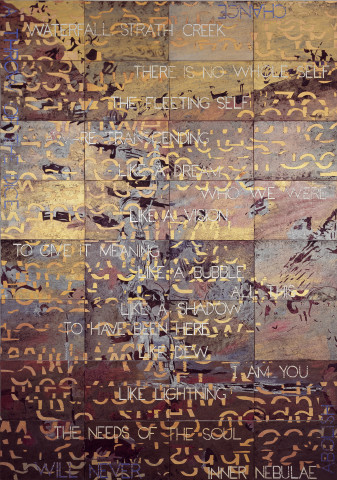 WATERFALL STRATH CREEK
CHANCE
THERE IS NO WHOLE SELF
THE FLEETING SELF
RE TRANSCENDING
LIKE A DREAM
WHO WE WERE
LIKE A VISION
TO GIVE IT MEANING
LIKE A BUBBLE
ALL THIS
LIKE A SHADOW
TO HAVE BEEN HERE
LIKE DEW
I AM YOU
LIKE LIGHTNING
THE NEEDS OF THE SOUL
WILL NEVER
INNER NEBULAE